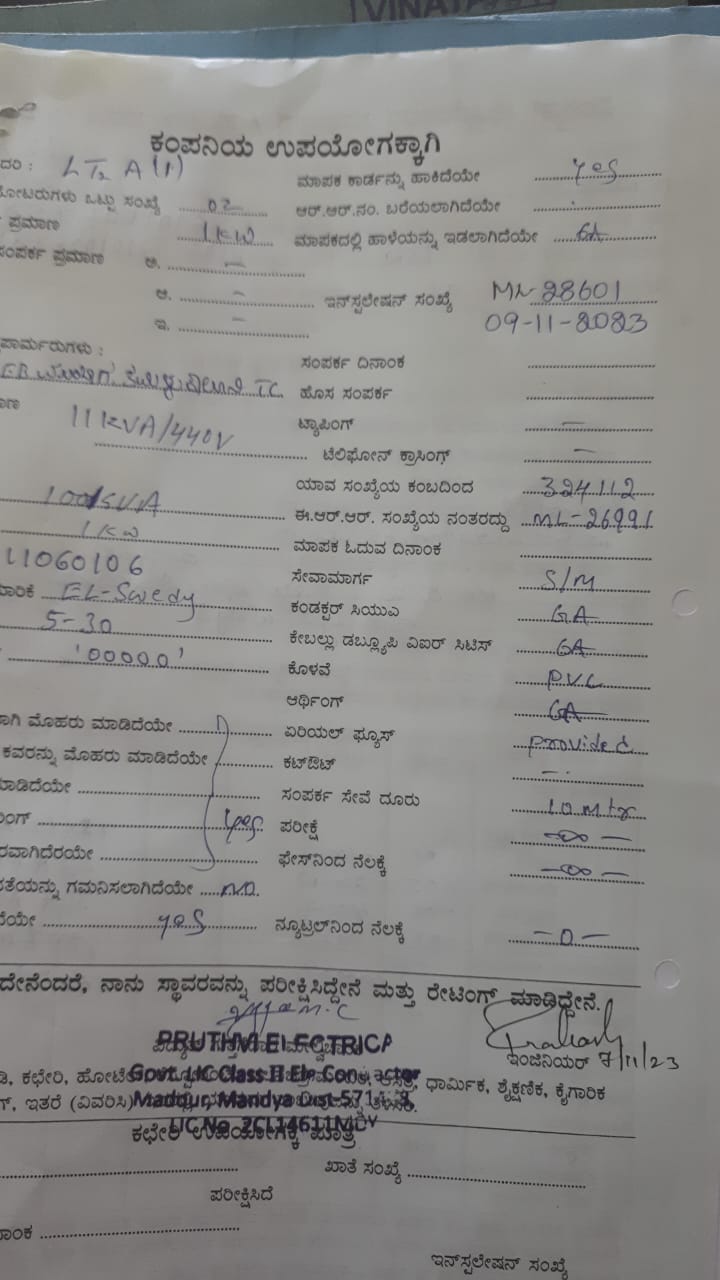 VINAYA
ಕಂಪನಿಯ ಉಪಯೋಗಕ್ಕಾಗಿ
ದರ : LT2 A(1) ಮಾಪಕ ಕಾರ್ಡನ್ನು ಹಾಕಿದೆಯೇ yes
ಮೋಟರುಗಳು ಒಟ್ಟು ಸಂಖ್ಯೆ 02 ಆರ್.ಆರ್.ನಂ. ಬರೆಯಲಾಗಿದೆಯೇ
ಪ್ರಮಾಣ 1KW ಮಾಪಕದಲ್ಲಿ ಹಾಳೆಯನ್ನು ಇಡಲಾಗಿದೆಯೇ GA
ಸಂಪರ್ಕ ಪ್ರಮಾಣ ಅ. –
ಆ. – ಇನ್‌ಸ್ಪಲೇಷನ್ ಸಂಖ್ಯೆ ML-28601
ಇ. – 09-11-2023
ಪಾರ್ಮರುಗಳು : ಸಂಪರ್ಕ ದಿನಾಂಕ
TC ಹೊಸ ಸಂಪರ್ಕ
11KVA/440V ಟ್ಯಾಪಿಂಗ್ –
ಟೆಲಿಫೋನ್ ಕ್ರಾಸಿಂಗ್ –
ಯಾವ ಸಂಖ್ಯೆಯ ಕಂಬದಿಂದ 324112
ಈ.ಆರ್.ಆರ್. ಸಂಖ್ಯೆಯ ನಂತರದ್ದು ML-26991
1KW ಮಾಪಕ ಓದುವ ದಿನಾಂಕ
11060106 ಸೇವಾಮಾರ್ಗ S/M
ಾರಿಕೆ EL-Swedy ಕಂಡಕ್ಟರ್ ಸಿಯುವಿ GA
5-30 ಕೇಬಲ್ಲು ಡಬ್ಲ್ಯೂಪಿ ವಿಐರ್ ಸಿಟಿಸ್ GA
'00000' ಕೊಳವೆ PVC
ಆರ್ಥಿಂಗ್ GA
ಾಗಿ ಮೊಹರು ಮಾಡಿದೆಯೇ ಏರಿಯಲ್ ಫ್ಯೂಸ್ provided
ಕವರನ್ನು ಮೊಹರು ಮಾಡಿದೆಯೇ ಕಟ್‌ಔಟ್ –
ಮಾಡಿದೆಯೇ ಸಂಪರ್ಕ ಸೇವೆ ದೂರು 10 mtr
ಂಗ್ yes ಪರೀಕ್ಷೆ –∞–
ರವಾಗಿದೆರಯೇ ಫೇಸ್‌ನಿಂದ ನೆಲಕ್ಕೆ –∞–
ತೆಯನ್ನು ಗಮನಿಸಲಾಗಿದೆಯೇ no.
ದೆಯೇ yes ನ್ಯೂಟ್ರಲ್‌ನಿಂದ ನೆಲಕ್ಕೆ –0–
ದೇನೆಂದರೆ, ನಾನು ಸ್ಥಾವರವನ್ನು ಪರೀಕ್ಷಿಸಿದ್ದೇನೆ ಮತ್ತು ರೇಟಿಂಗ್ ಮಾಡಿದ್ದೇನೆ.
PRUTHVI ELECTRICA
ಇಂಜಿನಿಯರ್ 7/11/23
ಡಿ, ಕಛೇರಿ, ಹೋಟೆ Govt. LIC Class II Ele Contractor ಧಾರ್ಮಿಕ, ಶೈಕ್ಷಣಿಕ, ಕೈಗಾರಿಕ
ಗ್, ಇತರೆ (ವಿವರಿಸಿ) Maddur, Mandya Dist-571
LIC No. 2CL14611MDY
ಕಛೇರಿ ಉಪಯೋಗಕ್ಕೆ ಮಾತ್ರ
ಖಾತೆ ಸಂಖ್ಯೆ
ಪರೀಕ್ಷಿಸಿದೆ
ಾಂಕ
ಇನ್‌ಸ್ಪಲೇಷನ್ ಸಂಖ್ಯೆ